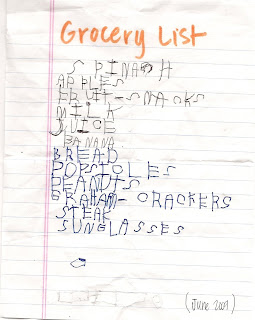 Grocery List
SPINACH
APPLES
FRUIT-SNACKS
MILK
JUICE
BANANA
BREAD
POPSICLES
PEANUTS
GRAHAM-CRACKERS
STEAK
SUNGLASSES
(June 2009)